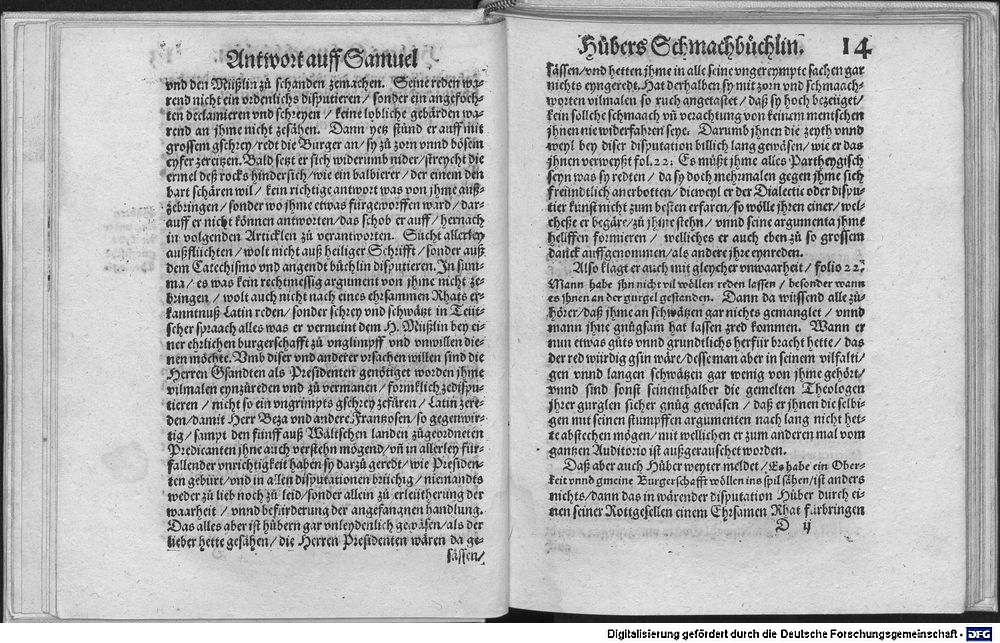 Antwort auff Samuel
vnd den Müßlin zů schanden zemachen. Seine reden wa-
rend nicht ein ordenlichs disputieren / sonder ein angefoch-
ten declamieren vnd schreyen / keine lobliche gebärden wa-
rend an jhme nicht zesähen. Dann yetz stůnd er auff mit
grossem gschrey / redt die Burger an / sy zů zorn vnnd bösem
eyfer zereitzen. Bald setzt er sich widerumb nider / streycht die
ermel deß rocks hindersich / wie ein balbierer / der einem den
bart schären wil / kein richtige antwort was von jhme auß-
zebringen / sonder wo jhme etwas fürgeworffen ward / dar-
auff er nicht können antworten / das schob er auff / hernach
in volgenden Articklen zů verantworten. Sůcht allerley
außflüchten / wolt nicht auß heiliger Schrifft / sonder auß
dem Catechismo vnd angendt büchlin disputieren. In sum-
ma / es was kein rechtmessig argument von jhme nicht ze-
bringen / wolt auch nicht nach eines ehrsammen Rhats er-
kanntnuß Latin reden / sonder schrey vnd schwätzt in Teüt-
scher spraach alles was er vermeint dem H. Müßlin bey ei-
ner ehrlichen burgerschafft zů vnglimpff vnd vnwillen die-
nen möchte. Vmb diser vnd anderer vrsachen willen sind die
Herren Gsandten als Presidenten genötiget worden jhme
vilmalen eynzůreden vnd zů vermanen / formklich zedispu-
tieren / nicht so ein vngrimpts gschrey zefüren / Latin zere-
den / damit Herr Beza vnd andere Frantzosen / so gegenwir-
tig / sampt den fünff auß Wältschen landen zůgeordneten
Predicanten jhne auch verstehn mögend / vñ in allerley für-
fallender vnrichtigkeit haben sy darzů geredt / wie Presiden-
ten gebürt / vnd in allen disputationen brüchig / niemandts
weder zů lieb noch zů leid / sonder allein zů erleitherung der
waarheit / vnnd befürderung der angefangnen handlung.
Das alles aber ist hübern gar vnleydenlich gewäsen / als der
lieber hette gesähen / die Herren Presidenten wären da ge-
sässen /
Hübers Schmachbüchlin. 14
sässen / vnd hetten jhme in alle seine vngereympte sachen gar
nichts eyngeredt. Hat derhalben sy mit zorn vnd schmaach-
worten vilmalen so ruch angetastet / daß sy hoch bezeüget /
kein söllche schmaach vñ verachtung von keinem menschen
jhnen nie widerfahren seye. Darumb jhnen die zeyth vnnd
weyl bey diser disputation billich lang gewäsen / wie er das
jhnen verweyßt fol. 22. Es müßt jhme alles Partheygisch
seyn was sy redten / da sy doch mehrmalen gegen jhme sich
freündtlich anerbotten / dieweyl er der Dialectic oder dispu-
tier kunst nicht zum besten erfaren / so wölle jhren einer / wel-
cheße er begäre / zů jhme stehn / vnnd seine argumenta jhme
helffen formieren / welliches er auch eben zů so grossem
danck auffgenommen / als andere jhre eynreden.
Also klagt er auch mit gleycher vnwaarheit / folio 22.
Mann habe jhn nicht vil wöllen reden lassen / besonder wann
es jhnen an der gurgel gestanden. Dann da wüssend alle zů-
hörer / daß jhme an schwätzen gar nichts gemanglet / vnnd
mann jhne gnůgsam hat lassen zred kommen. Wann er
nun etwas gůts vnnd grundtlichs herfür bracht hette / das
der red würdig gsin wäre / desse man aber in seinem vilfalti-
gen vnnd langen schwätzen gar wenig von jhme gehört /
vnnd sind sonst seinenthalber die gemelten Theologen
jhrer gurglen sicher gnůg gewäsen / daß er jhnen die selbi-
gen mit seinen stumpffen argumenten nach lang nicht het-
te abstechen mögen / mit wellichen er zum anderen mal vom
gantzen Auditorio ist außgerauschet worden.
Daß aber auch Hüber weyter meldet / Es habe ein Ober-
keit vnnd gmeine Burgerschafft wöllen ins spil sähen / ist anders
nichts / dann das in wärender disputation Hüber durch ei-
nen seiner Rottgesellen einem Ehrsamen Rhat fürbringen
D ij
Digitalisierung gefördert durch die Deutsche Forschungsgemeinschaft - DFG